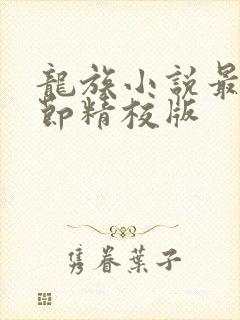 龍族小説最
節精校版
隽眷葉子